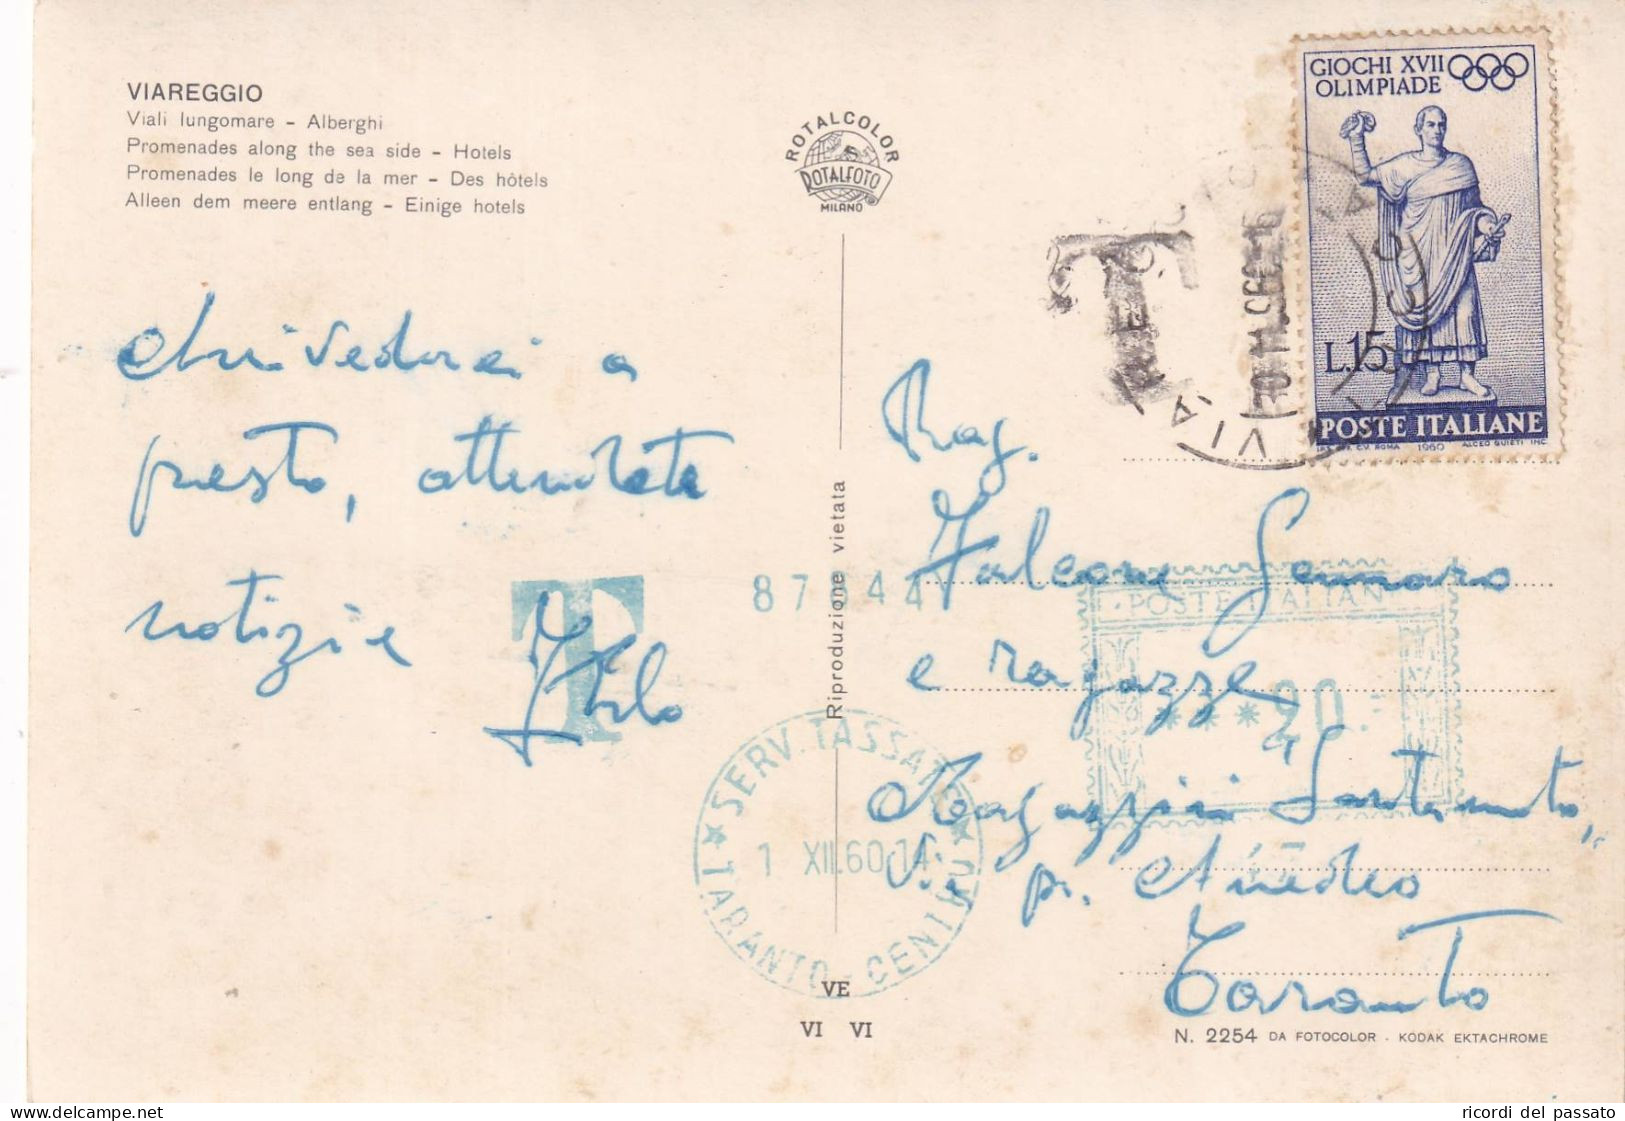 VIAREGGIO
Viali lungomare – Alberghi
Promenades along the sea side – Hotels
Promenades le long de la mer – Des hôtels
Alleen dem meere entlang – Einige hotels
ROTALCOLOR
ROTALFOTO
MILANO
GIOCHI XVII
OLIMPIADE
L.15
POSTE ITALIANE
1960
T
presto, attendete
notizie
T
Italo
Riproduzione vietata
Rag.
Falcone Gennaro
e ragazze
Magazzini
p. Amedeo
Taranto
POSTE ITALIAN
***20
SERV. TASSAT
1 XII.60.14
TARANTO - CENTRO
VE
VI VI
N. 2254 DA FOTOCOLOR - KODAK EKTACHROME
ricordi del passato